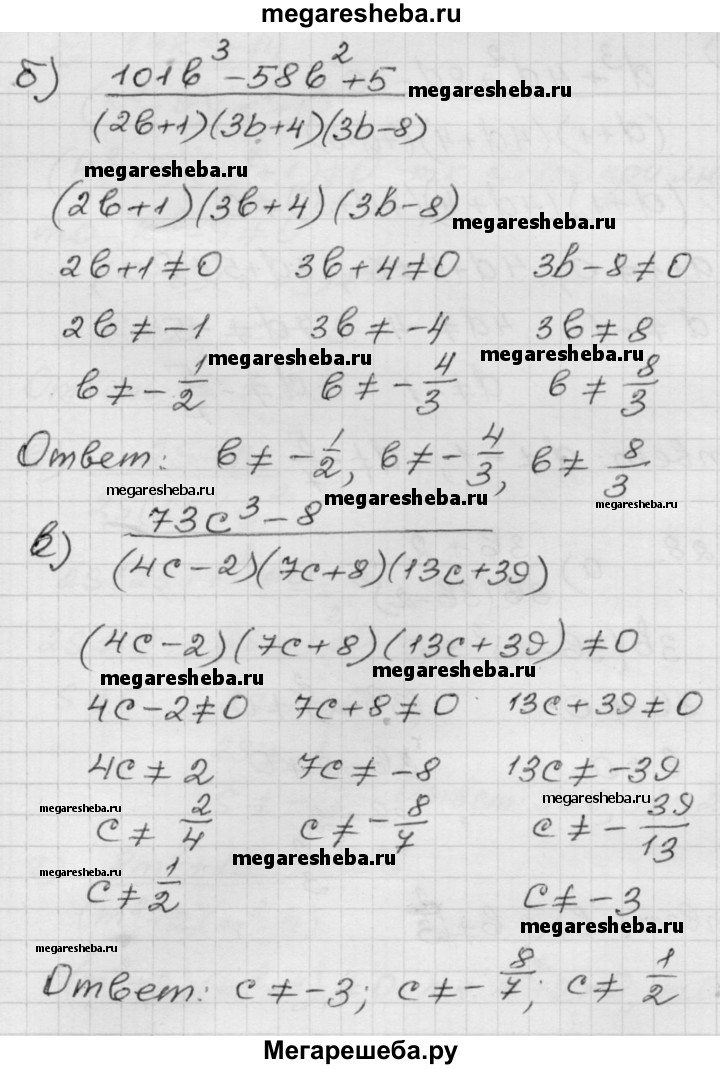 megaresheba.ru
б) (101b³ − 58b² + 5) / ((2b+1)(3b+4)(3b−8)) megaresheba.ru
megaresheba.ru
(2b+1)(3b+4)(3b−8) megaresheba.ru
2b+1≠0 3b+4≠0 3b−8≠0
2b≠−1 3b≠−4 3b≠8
megaresheba.ru megaresheba.ru
b≠−1/2 b≠−4/3 b≠8/3
Ответ: b≠−1/2, b≠−4/3, b≠8/3
megaresheba.ru megaresheba.ru megaresheba.ru
в) (73c³−8) / ((4c−2)(7c+8)(13c+39))
(4c−2)(7c+8)(13c+39)≠0
megaresheba.ru megaresheba.ru
4c−2≠0 7c+8≠0 13c+39≠0
4c≠2 7c≠−8 13c≠−39
megaresheba.ru megaresheba.ru
c≠2/4 c≠−8/7 c≠−39/13
megaresheba.ru megaresheba.ru
c≠1/2 c≠−3
megaresheba.ru
megaresheba.ru
Ответ: c≠−3; c≠−8/7; c≠1/2
Мегарешеба.ру